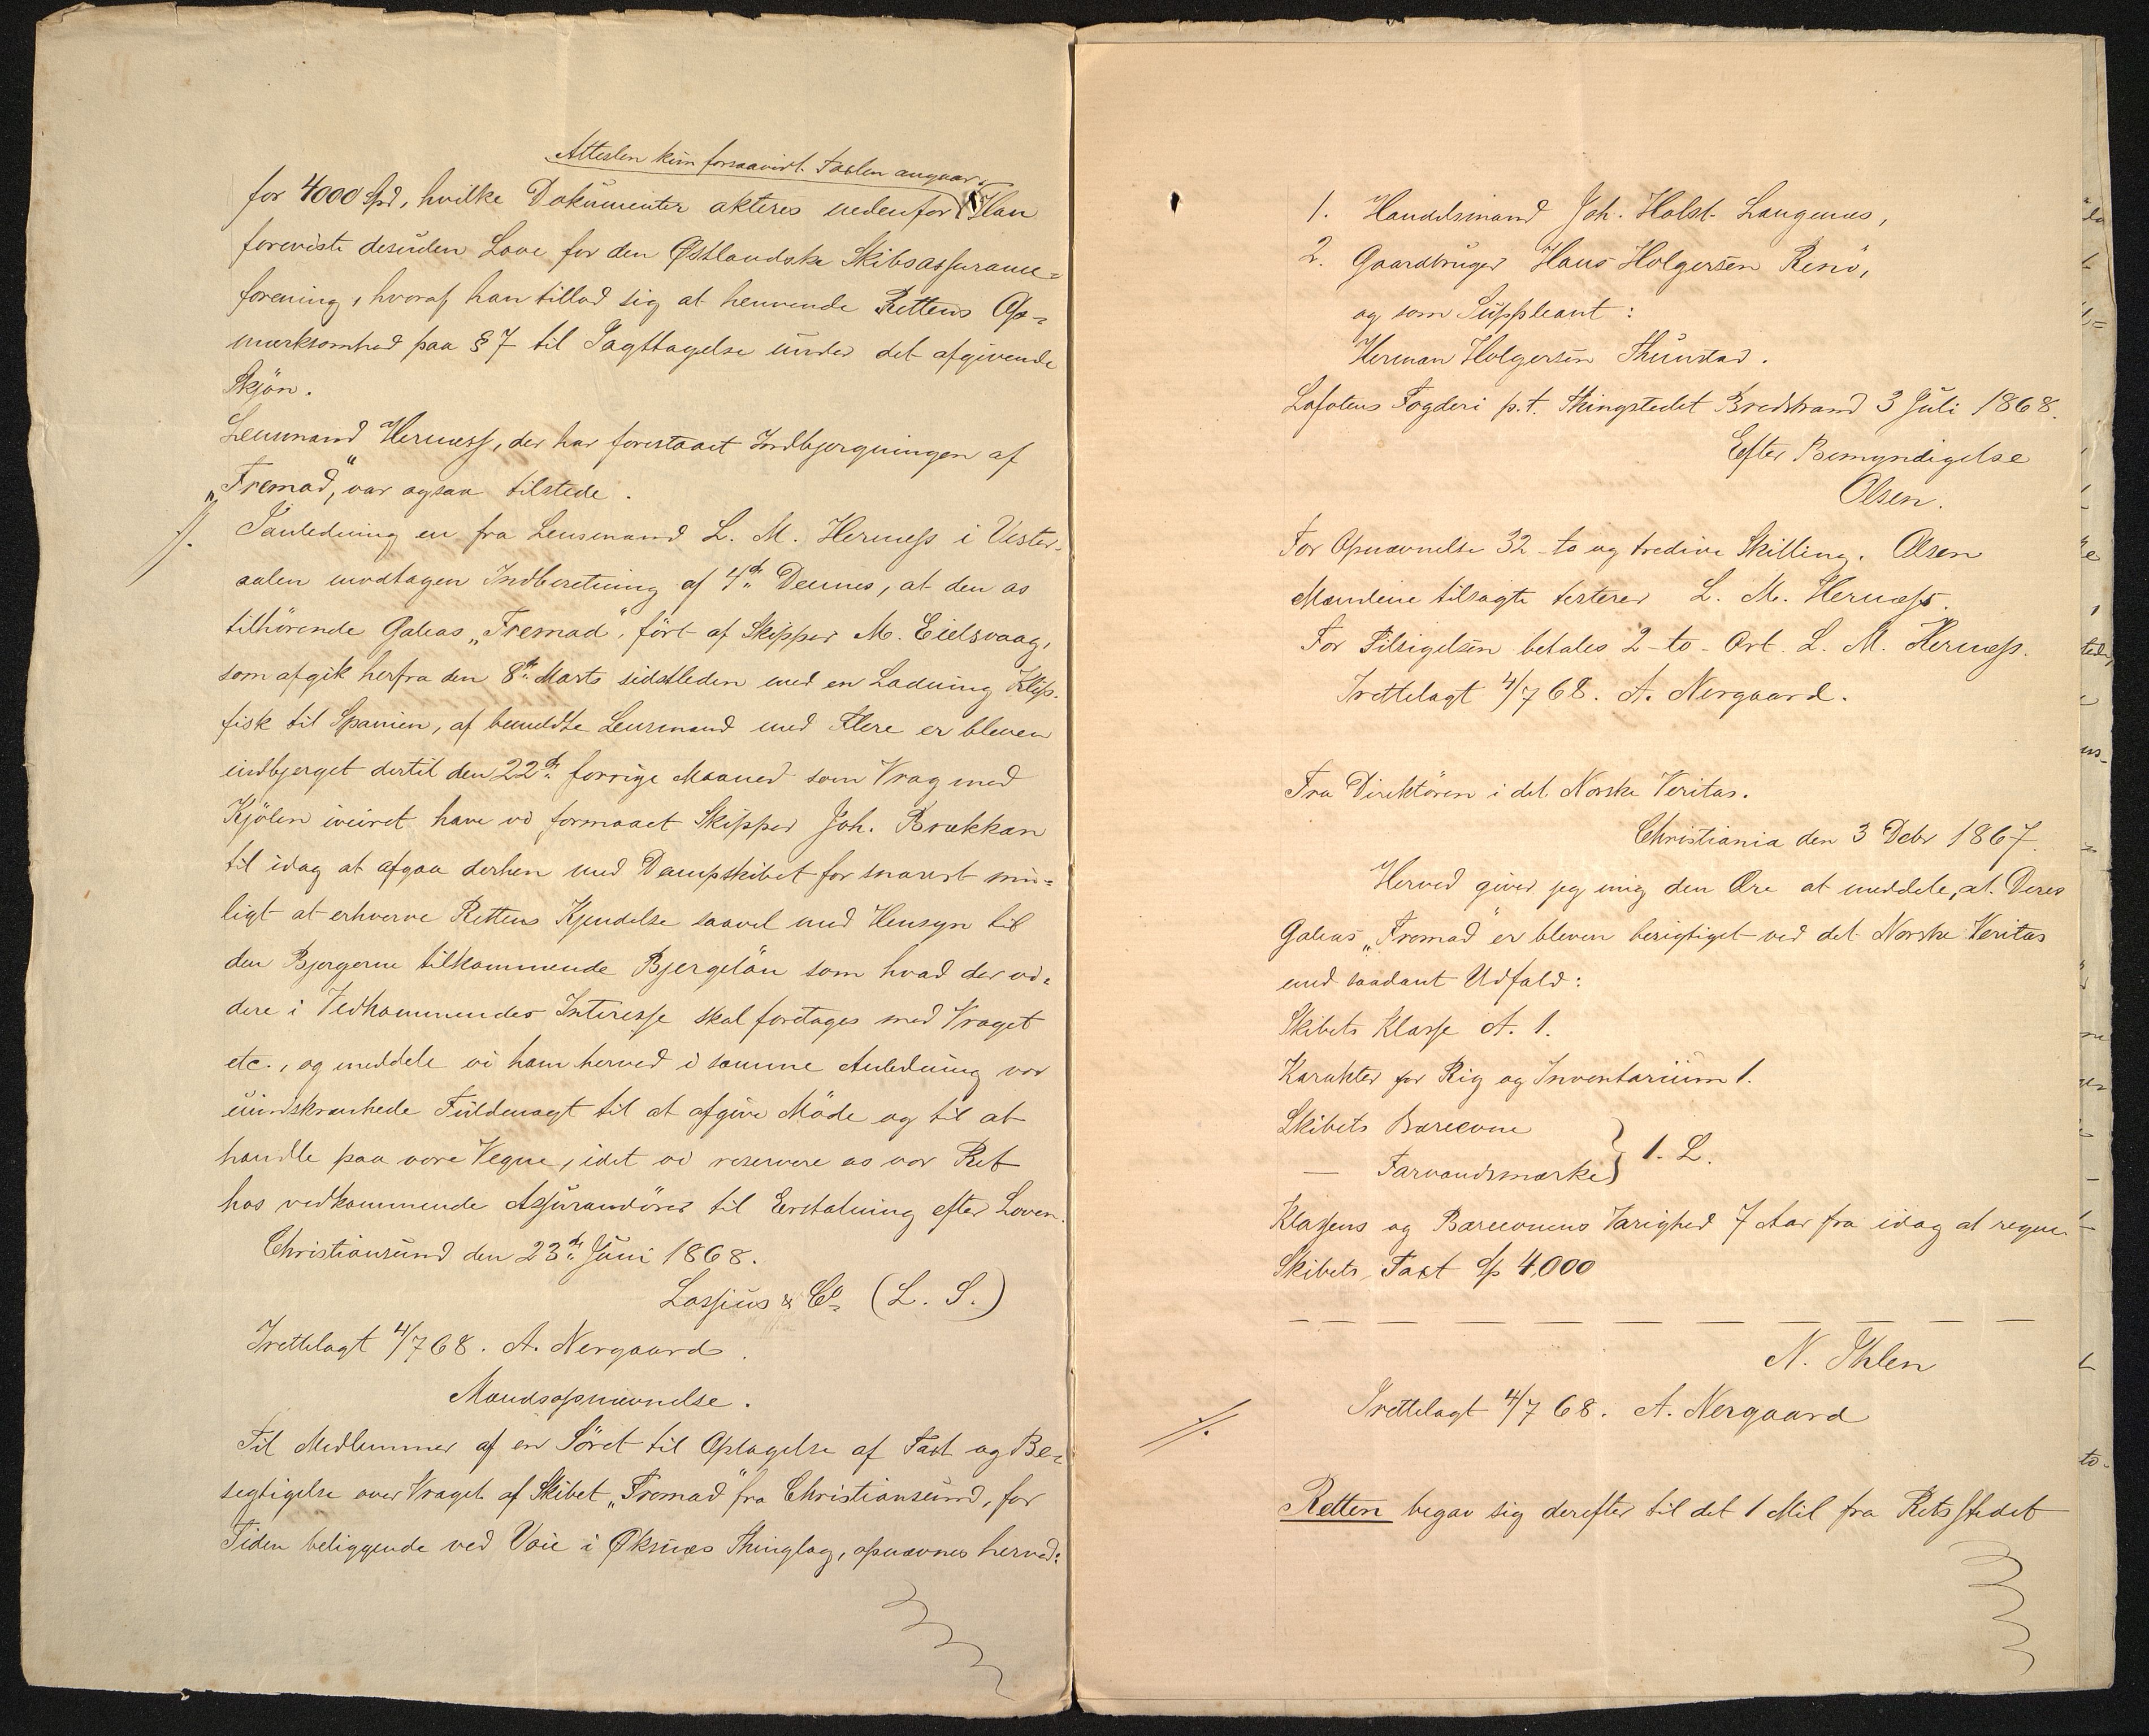 Attesten kun forsaavidt Taxten angaar.
for 4000 Spd, hvilke Dokumenter akteres nedenfor Han
foreviste desuden Love for den Østlandske Skibsassurance=
forening, hvoraf han tillod sig at henvende Rettens Op=
mærksomhed paa § 7 til Iagttagelse under det afgivende
Skjön.
Lensmand Hernæss, der har forestaaet Indbjergningen af
„Fremad“, var ogsaa tilstede.
//. I Anledning en fra Lensmand L. M. Hernæss i Vester-
aalen modtagen Indberetning af 4de Dennes, at den os
tilhörende Galeas „Fremad“, fört af Skipper M. Eidsvaag,
som afgik herfra den 8de Marts sidstleden med en Ladning Klip-
fisk til Spanien, af bemeldte Lensmand med Flere er bleven
indbjerget dertil den 22de forrige Maaned som Vrag med
Kjölen iveiret have vi formaaet Skipper Joh. Brækkan
til idag at afgaa derhen med Dampskibet for snarest mu=
ligt at erhverve Rettens Kjendelse saavel med Hensyn til
den Bjergerne tilkommende Bjergelön som hvad der vi=
dere i Vedkommendes Interesse skal foretages med Vraget
etc., og meddele vi ham herved i samme Anledning vor
uindskrænkede Fuldmagt til at afgive Möde og til at
handle paa vore Vegne, idet vi reservere os vor Ret
hos vedkommende Assurandörer til Erstatning efter Loven.
Christiansund den 23de Juni 1868.
Lossius & Co. (L. S.)
Irettelagt 4/7 68. A. Nergaard.
Mandsopnævnelse.
Til Medlemmer af en Söret til Optagelse af Taxt og Be=
sigtigelse over Vraget af Skibet „Fremad“ fra Christiansund, for
Tiden beliggende ved Vaie i Øksnæs Thinglag, opnævnes herved:
1. Handelsmand Joh. Holst Langenæs,
2. Gaardbruger Hans Holgersen Renö,
og som Suppleant:
Herman Holgersen Thunstad.
Lofotens Fogderi p.t. Thingstedet Bredstrand 3 Juli 1868.
Efter Bemyndigelse
Olsen.
For Opnævnelse 32 - to og tredive Skilling. Olsen
Mændene tilsagte testerer L. M. Hernæss.
For Tilsigelsen betales 2 - to - Ort. L. M. Hernæss.
Irettelagt 4/7 68. A. Nergaard.
Fra Direktören i det Norske Veritas.
Christiania den 3 Debr 1867.
Herved giver jeg mig den Ære at meddele, at Deres
Galeas „Fremad“ er bleven besigtiget ved det Norske Veritas
med saadant Udfald:
Skibets Klasse A. 1.
Karakter for Rig og Inventarium 1.
Skibets Bæreevne
— Farvandsmærke } 1. L.
Klassens og Bæreevnens Varighed 7 Aar fra idag at regne
Skibets Taxt Sp 4,000
— — — — — — — — — — — —
N. Ihlen
Irettelagt 4/7 68. A. Nergaard
//.
Retten begav sig derefter til det 1 Mil fra Retsstedet